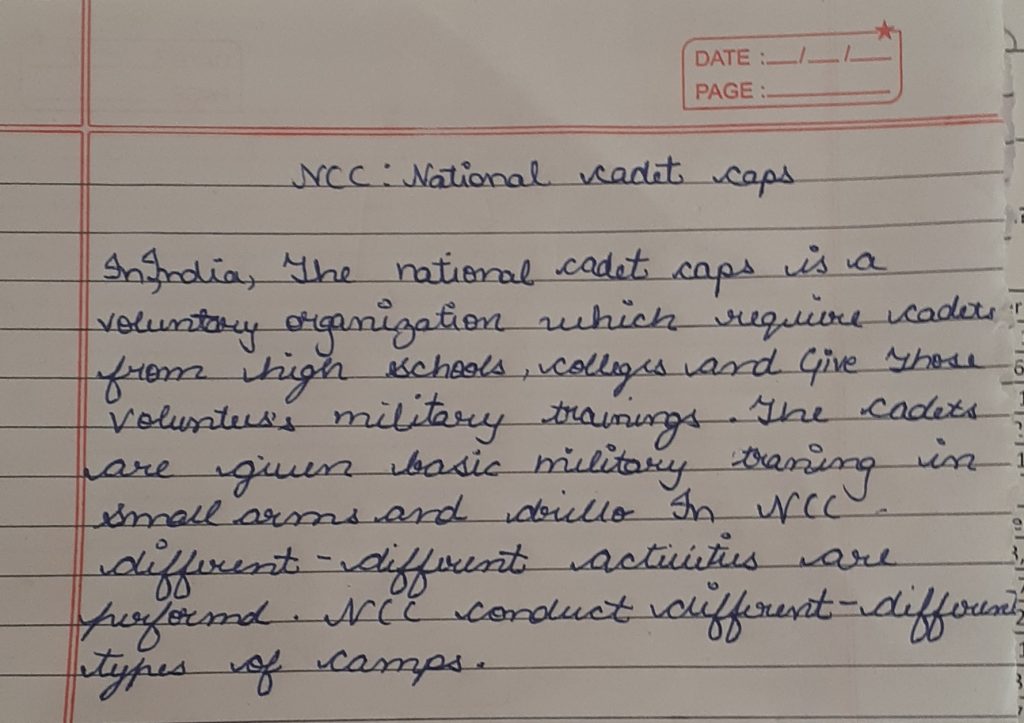 DATE :__/__/__
PAGE :______
NCC : National cadet caps
In India, The national cadet caps is a
voluntary organization which require cadets
from high schools, colleges and Give those
volunteers military trainings. The cadets
are given basic military traning in
small arms and drills In NCC.
different - different activities are
performd. NCC conduct different-different
types of camps.